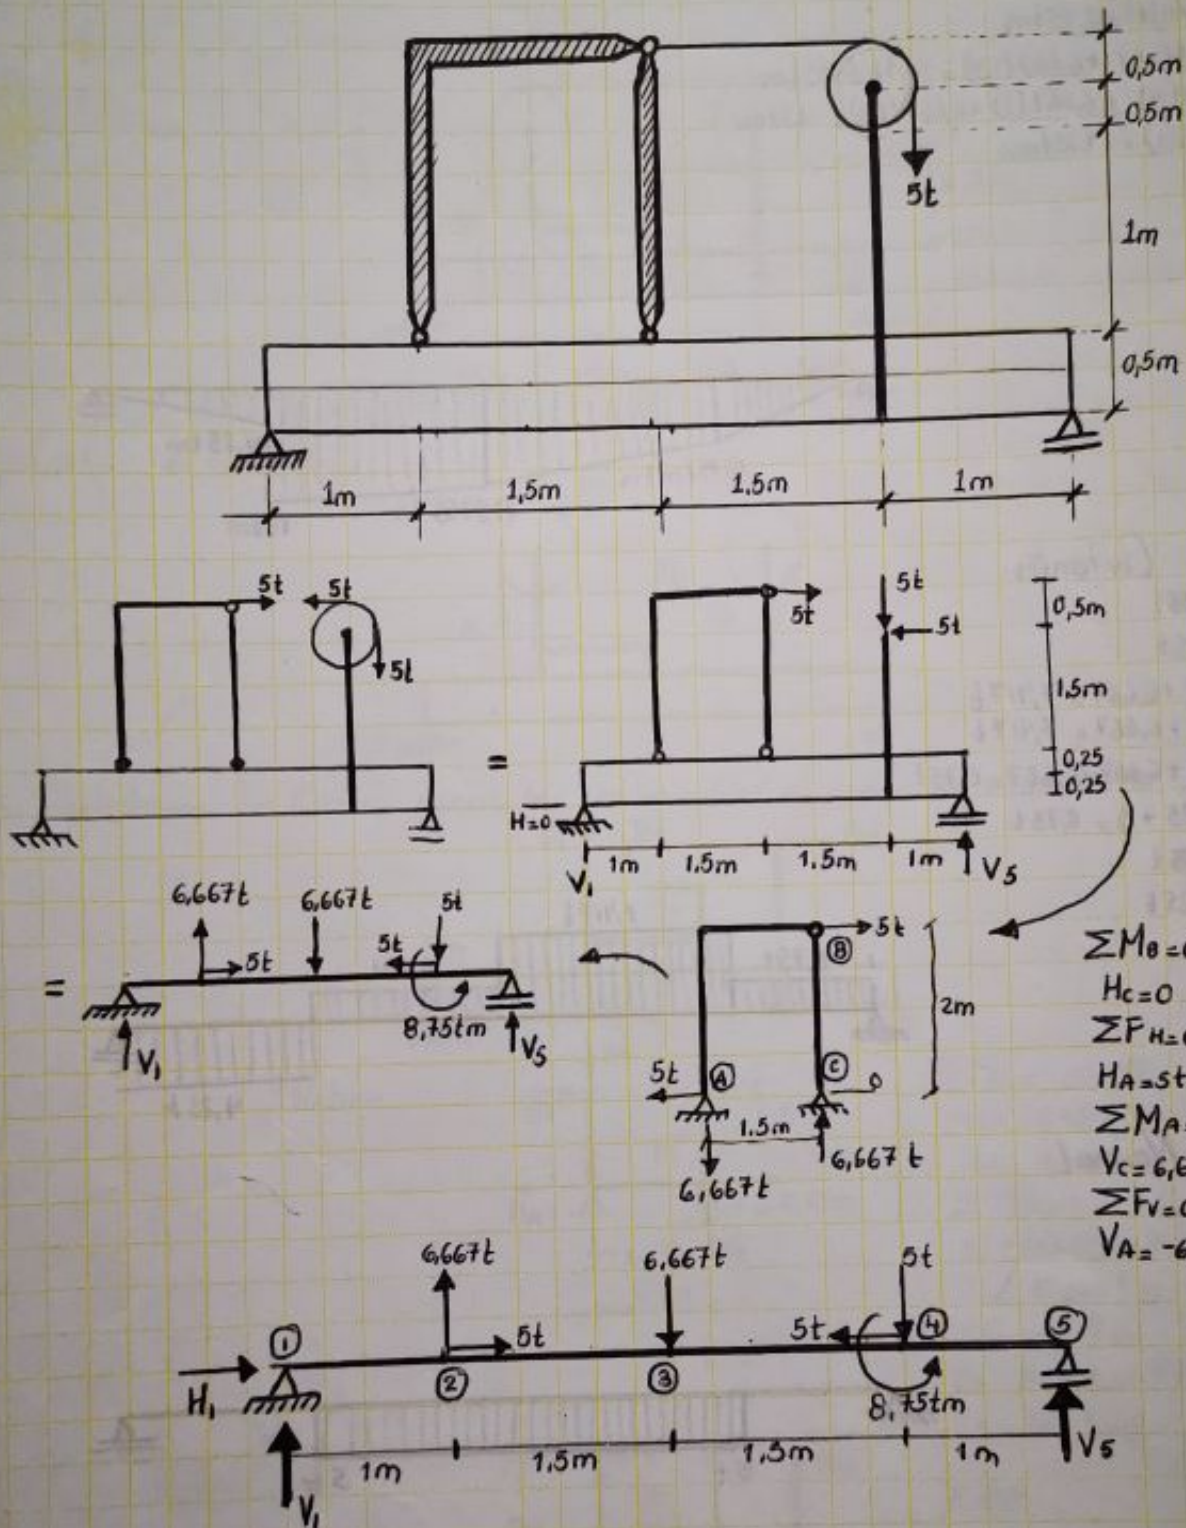 0,5m
0,5m
5t
1m
0,5m
1m 1,5m 1,5m 1m
5t 5t
5t
5t
5t
5t
0,5m
1,5m
=
0,25
0,25
H=0
1m 1.5m 1.5m 1m
V₁ V5
6,667t 6,667t 5t
5t 5t
=
8,75tm
V₁ V5
5t
B
2m
5t A C 0
1.5m
6,667t
6,667t
ΣMB=
Hc=0
ΣFH=
HA=5t
ΣMA=
Vc=6,6
ΣFv=
VA=-6
6,667t 6,667t 5t
1 5t 5t 4 5
H₁ 2 3
8,75tm
1m 1,5m 1,5m 1m
V₁ V5